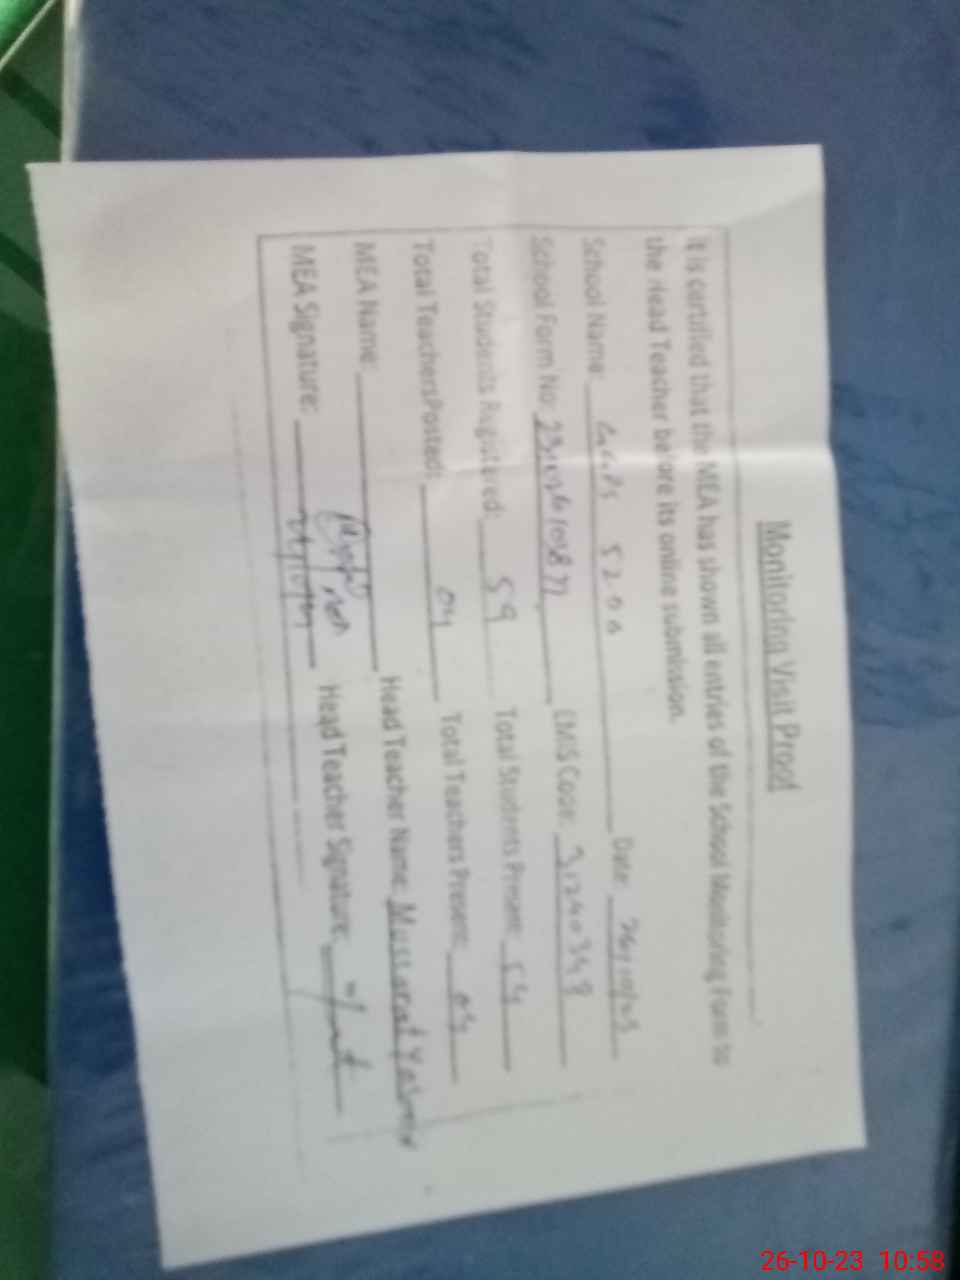 Monitoring Visit Proof
It is certified that the MEA has shown all entries of the School Monitoring Form to
the Head Teacher before its online submission.
School Name: GGPS 52 Date: 26/10/23
School Form No: EMIS Code:
Total Students Registered: 59 Total Students Present: 54
Total Teachers Posted: 04 Total Teachers Present: 04
MEA Name: Head Teacher Name: Mussarat Yasmin
MEA Signature: Head Teacher Signature:
26-10-23 10:58